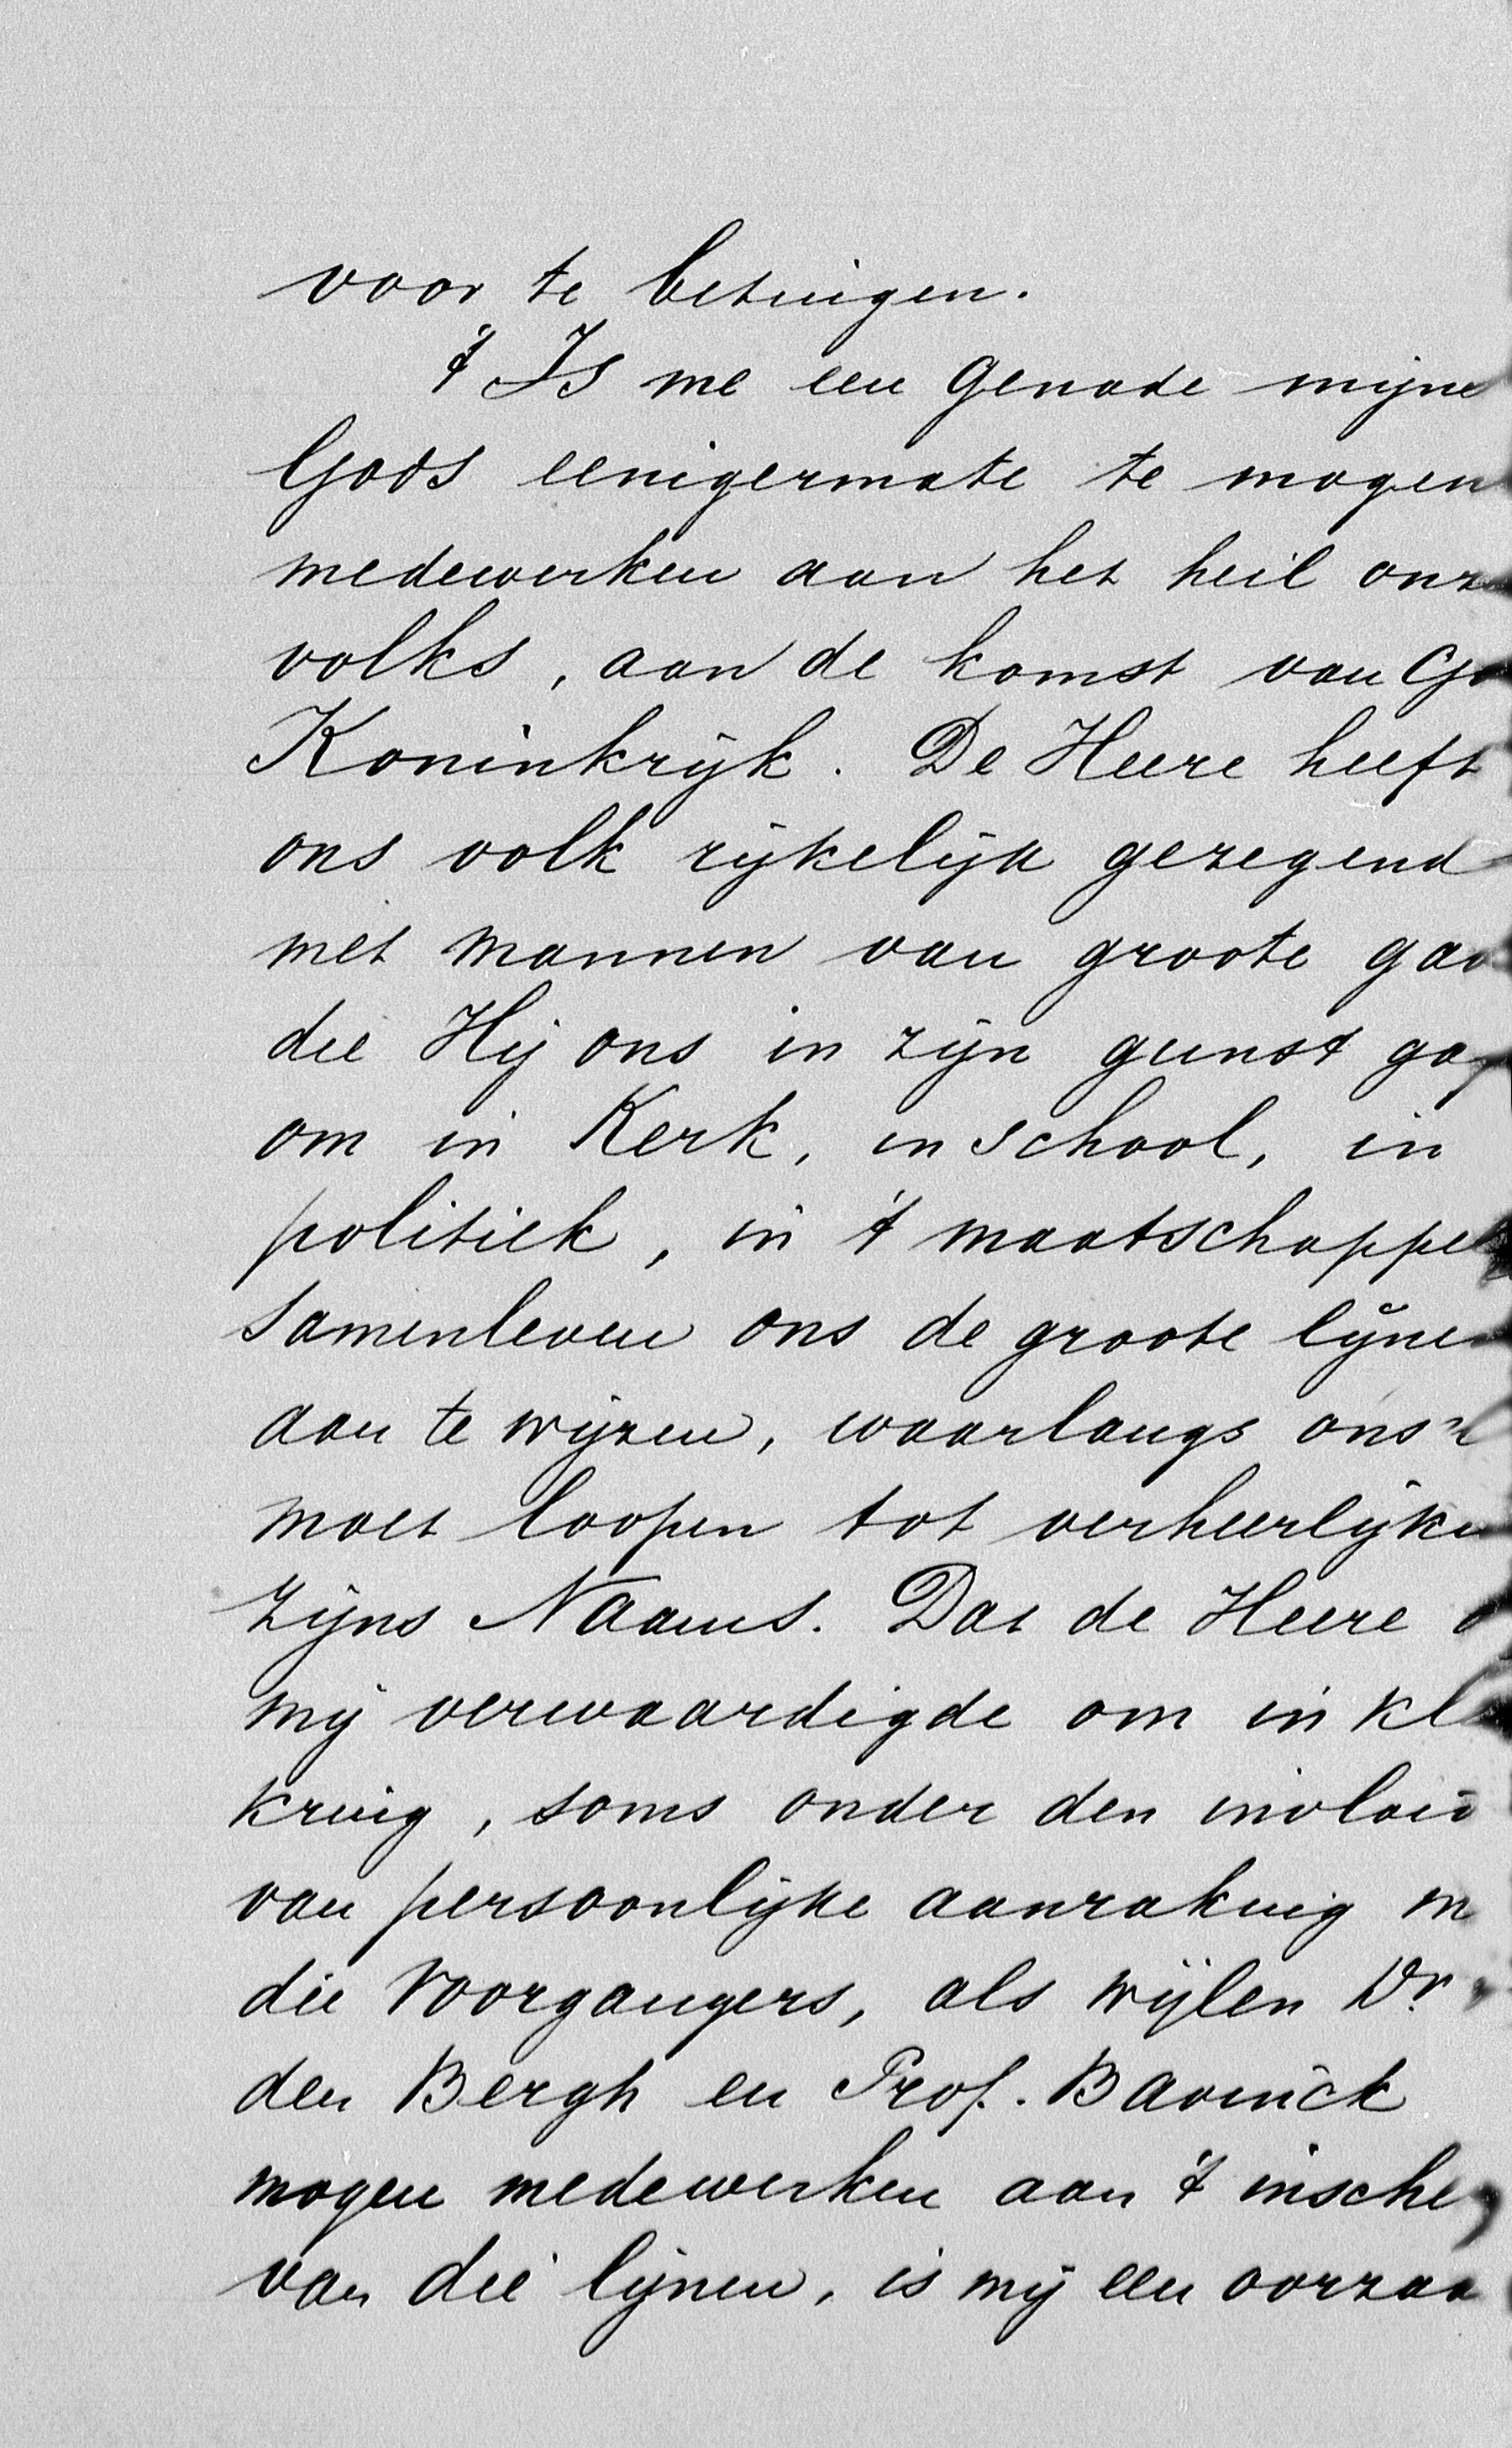 voor te betuigen.
't Is me een genade mijne
Gods eenigermate te mogen
medewerken aan het heil onze
volks, aan de komst van Go
Koninkrijk. De Heere heeft
ons volk rijkelijk gezegend
met mannen van groote gav
die Hij ons in zijn gunst gaf
om in Kerk, in school, in
politiek, in 't maatschappel
samenleven ons de groote lijnen
aan te wijzen, waarlangs ons
moet loopen tot verheerlijki
zijns Naams. Dat de Heere o
mij verwaardigde om in kl
kring, soms onder den invloed
van persoonlijke aanraking m
die Voorgangers, als wijlen Dr. v
den Bergh en Prof. Bavinck
mogen medewerken aan 't insche
van die lijnen, is mij een oorzaa